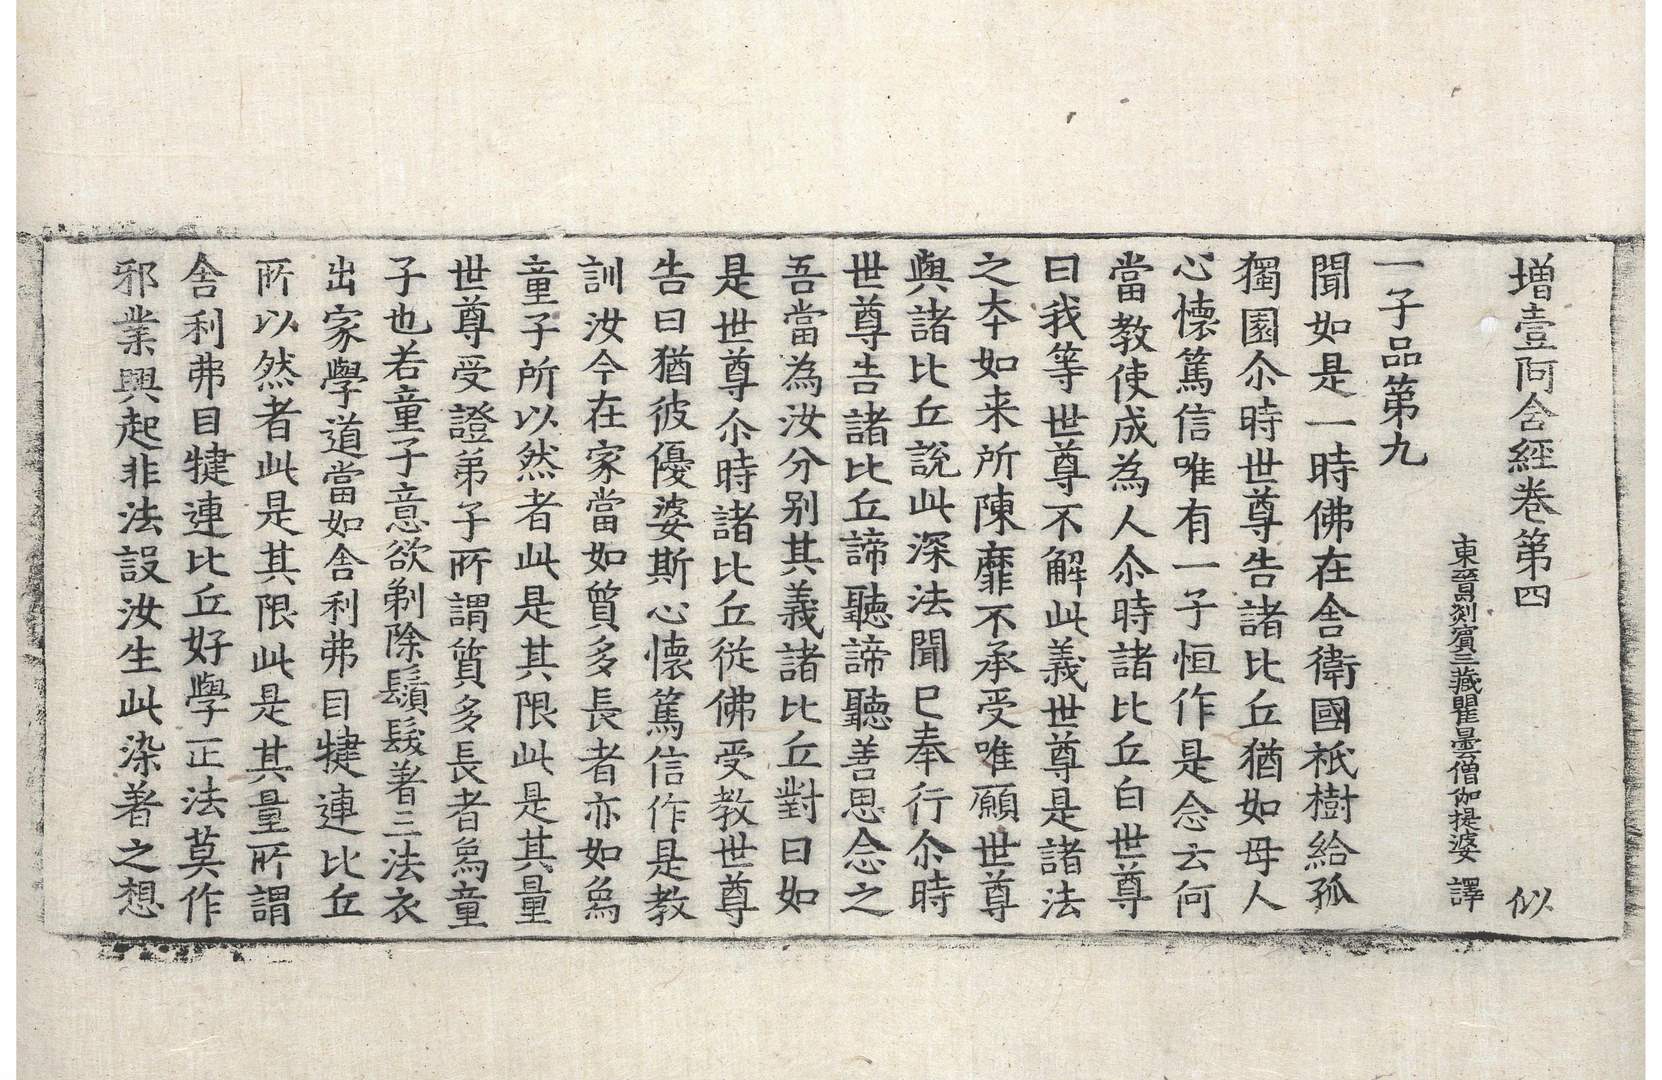 增壹阿含經卷第四 似
東晉罽賓三藏瞿曇僧伽提婆 譯
一子品第九
聞如是一時佛在舍衛國祇樹給孤
獨園尒時世尊告諸比丘猶如母人
心懷篤信唯有一子恒作是念云何
當教使成為人尒時諸比丘白世尊
曰我等世尊不解此義世尊是諸法
之本如来所陳靡不承受唯願世尊
與諸比丘說此深法聞已奉行尒時
世尊告諸比丘諦聽諦聽善思念之
吾當為汝分别其義諸比丘對曰如
是世尊尒時諸比丘從佛受教世尊
告曰猶彼優婆斯心懷篤信作是教
訓汝今在家當如質多長者亦如鳥
童子所以然者此是其限此是其量
世尊受證弟子所謂質多長者鳥童
子也若童子意欲剃除鬚髮著三法衣
出家學道當如舍利弗目犍連比丘
所以然者此是其限此是其量所謂
舍利弗目犍連比丘好學正法莫作
邪業興起非法設汝生此染著之想